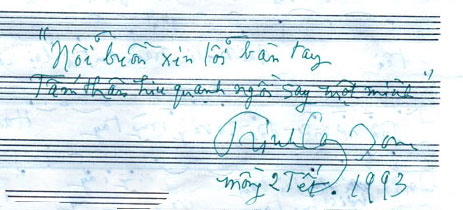 "Nỗi buồn xin lỗi bàn tay
Tấm thân hiu quạnh ngồi say một mình"
Trịnh Công Sơn
mồng 2 Tết. 1993